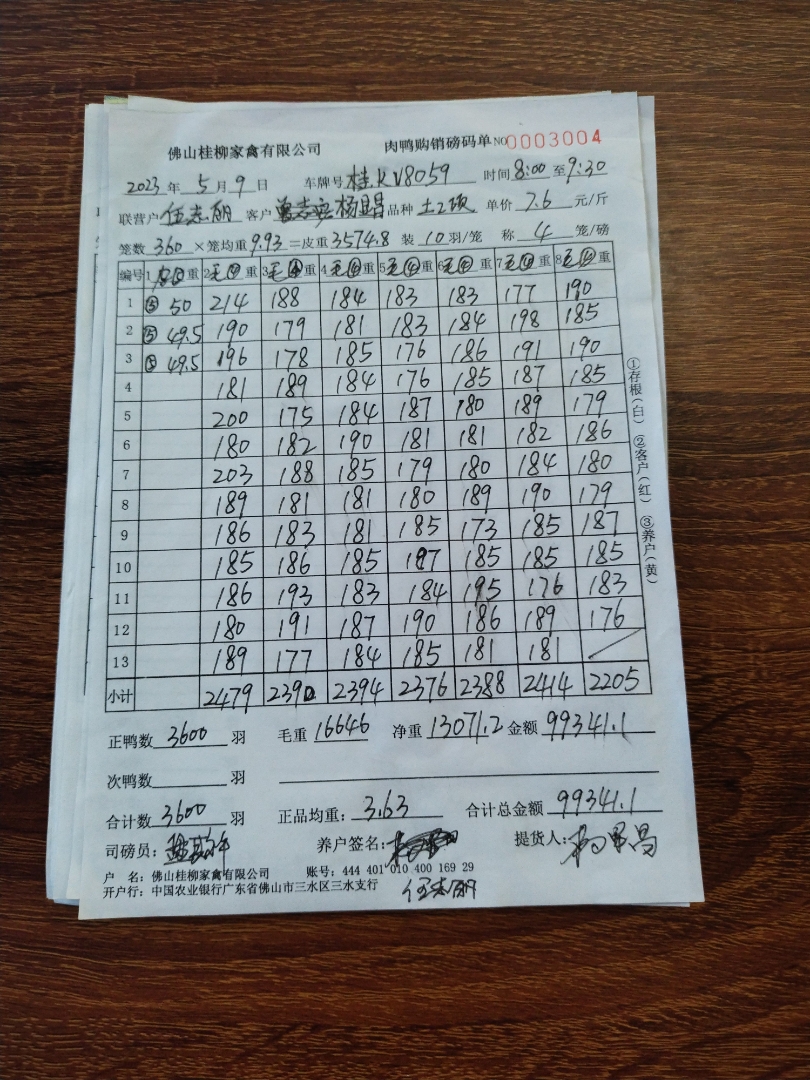 佛山桂柳家禽有限公司 肉鸭购销磅码单 NO 0003004
2023 年 5 月 9 日 车牌号 桂KV8059 时间 8:00 至 9:30
联营户 伍志丽 客户 杨昌 品种 土2 单价 7.6 元/斤
笼数 360 ×笼均重 9.93 =皮重 3574.8 装 10 羽/笼 称 4 笼/磅
编号 1 重 2 毛④重 3 毛④重 4 毛④重 5 毛④重 6 毛④重 7 毛④重 8 毛④重
1 ⑤ 50 214 188 184 183 183 177 190
2 ⑤ 49.5 190 179 181 183 184 198 185
3 ⑤ 49.5 196 178 185 176 186 191 190
4 181 189 184 176 185 187 185
5 200 175 184 187 180 189 179
6 180 182 190 181 181 182 186
7 203 188 185 179 180 184 180
8 189 181 181 180 189 190 179
9 186 183 181 185 173 185 187
10 185 186 185 187 185 185 185
11 186 193 183 184 195 176 183
12 180 191 187 190 186 189 176
13 189 177 184 185 181 181
小计 2479 2390 2394 2376 2388 2414 2205
正鸭数 3600 羽 毛重 16646 净重 13071.2 金额 99341.1
次鸭数 羽
合计数 3600 羽 正品均重: 3.63 合计总金额 99341.1
司磅员: 养户签名: 提货人: 杨昌
户 名: 佛山桂柳家禽有限公司 账号: 444 401 010 400 169 29
开户行: 中国农业银行广东省佛山市三水区三水支行 伍志丽
①存根(白) ②客户(红) ③养户(黄)